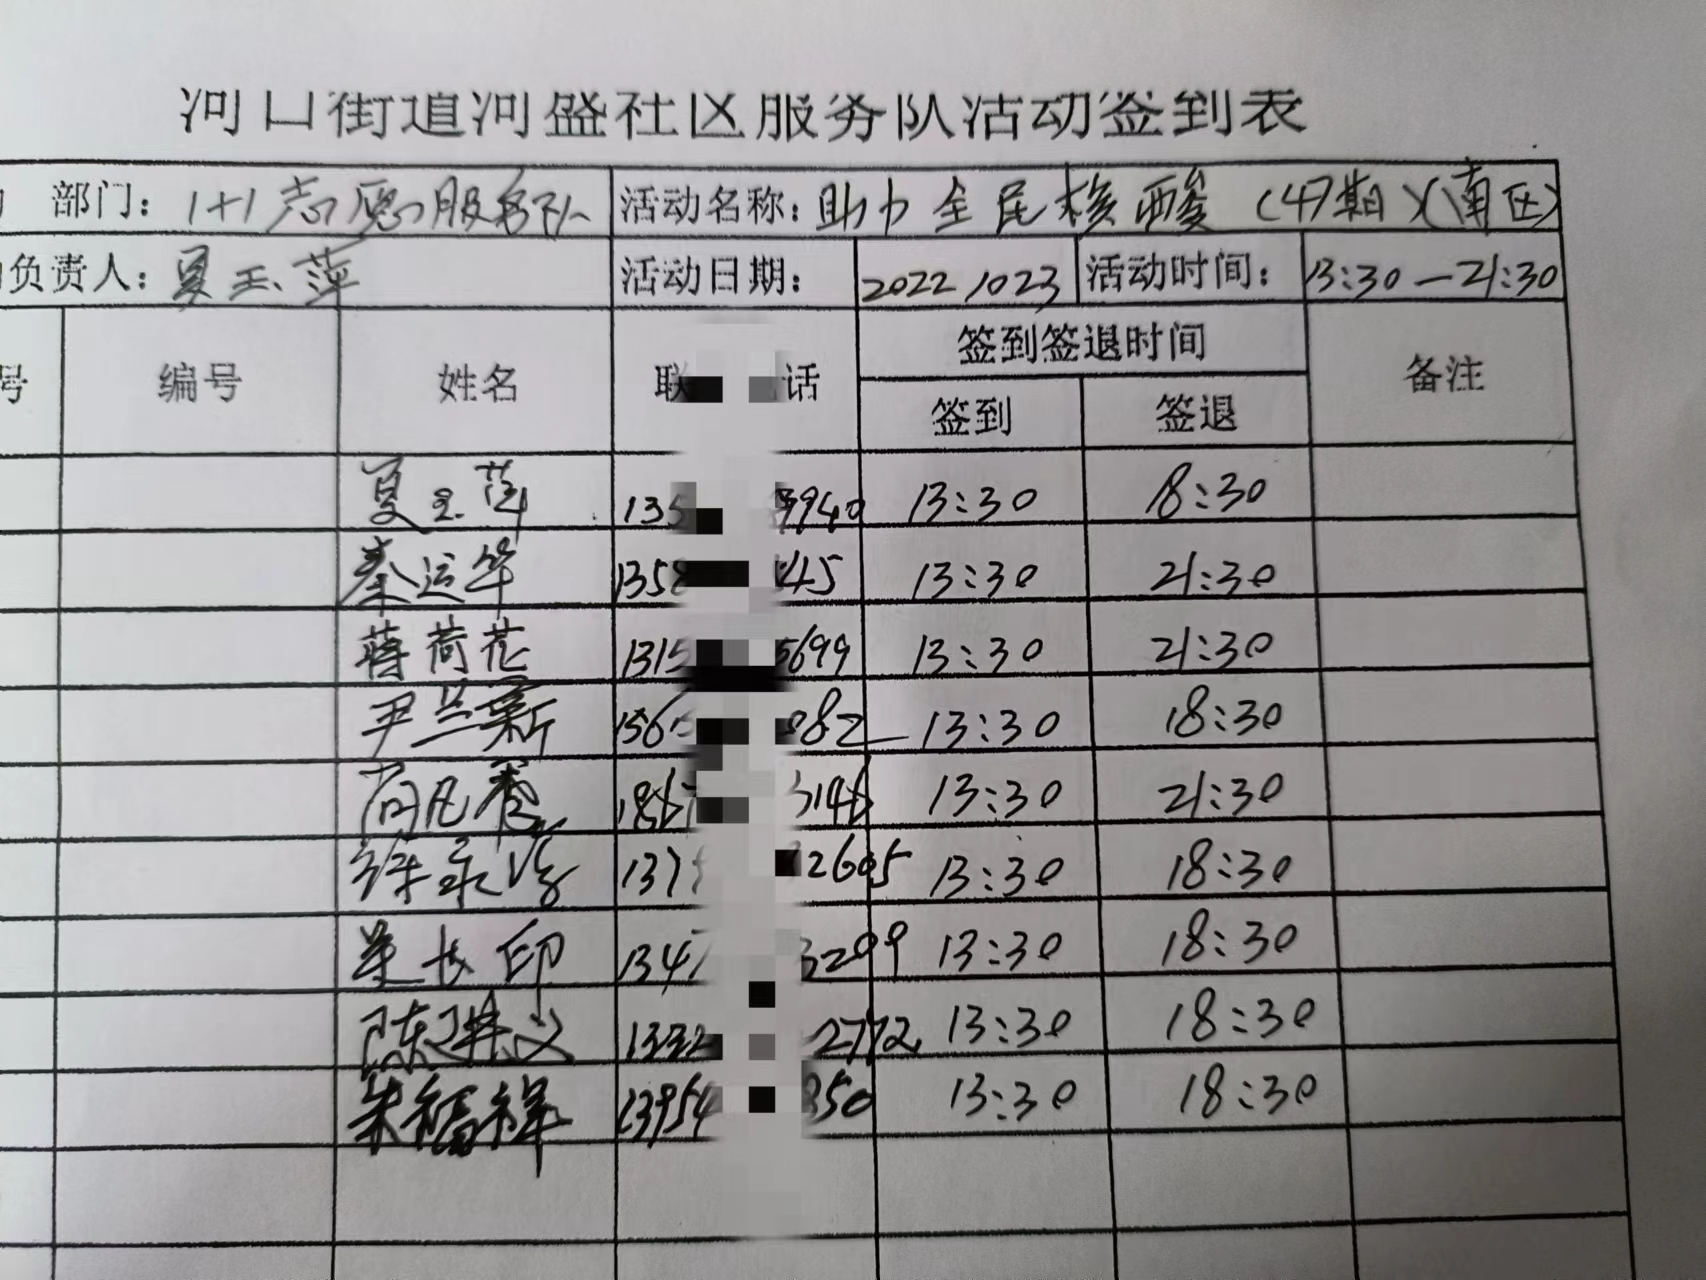 河口街道河盛社区服务队活动签到表
部门：1+1志愿服务队 活动名称：助力全民核酸（47期）（南区）
负责人：夏玉萍 活动日期： 20221023 活动时间： 13:30—21:30
号 编号 姓名 联 话 签到签退时间 备注
签到 签退
夏玉萍 135 9940 13:30 18:30
秦运华 1358 45 13:30 21:30
蒋荷花 1315 5699 13:30 21:30
尹兰新 156 082 13:30 18:30
186 3146 13:30 21:30
徐永 137 2605 13:30 18:30
长印 1347 3299 13:30 18:30
陈 义 1332 2772 13:30 18:30
朱福祥 13954 850 13:30 18:30